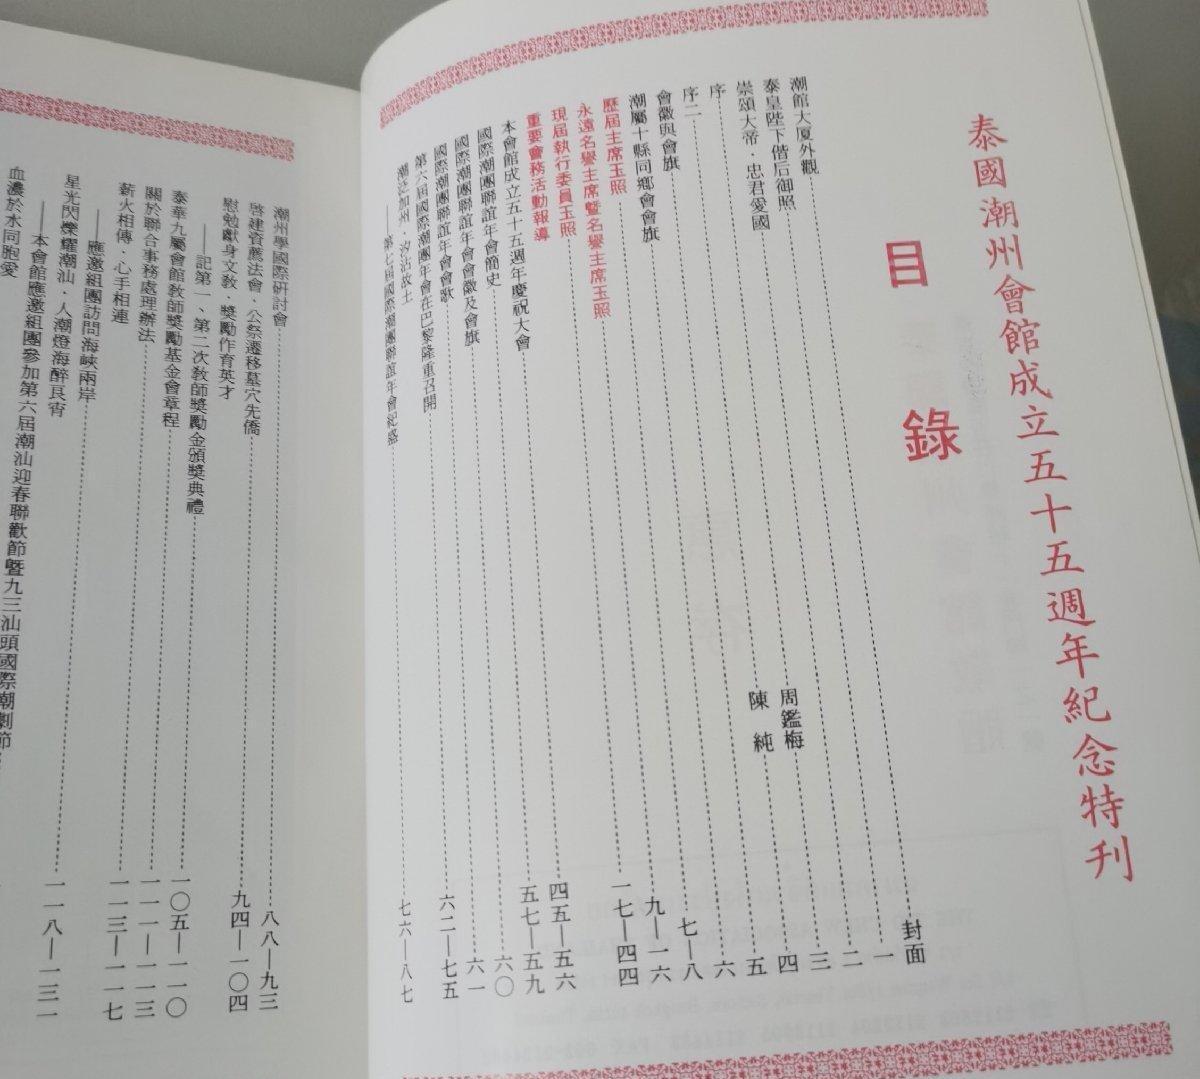 泰國潮州會館成立五十五週年紀念特刊
目錄
潮館大厦外觀 封面
泰皇陛下偕后御照 一
崇頌大帝.忠君愛國 二
序 周鑑梅 三
序二 陳純 四
會徽與會旗 五
潮屬十縣同鄉會會旗 六
歷屆主席玉照 七—八
永遠名譽主席曁名譽主席玉照 九—一六
現屆執行委員玉照 一七—四四
重要會務活動報導
本會館成立五十五週年慶祝大會 四五—五六
國際潮團聯誼年會簡史 五七—五九
國際潮團聯誼年會會徽及會旗 六〇
國際潮團聯誼年會會歌 六一
第六屆國際潮團年會在巴黎隆重召開 六二—七五
潮泛加州.汐沾故土
——第七屆國際潮團聯誼年會紀盛 七六—八七
潮州學國際研討會 八八—九三
啓建資薦法會.公祭遷移墓穴先僑 九四—一〇四
慰勉獻身文敎.獎勵作育英才
——記第一、第二次敎師獎勵金頒獎典禮 一〇五—一一〇
泰華九屬會館敎師獎勵基金會章程 一一一—一一三
關於聯合事務處理辦法 一一三—一一七
薪火相傳.心手相連
——應邀組團訪問海峽兩岸 一一八—一三一
星光閃爍耀潮汕.人潮燈海醉良宵
——本會館應邀組團參加第六屆潮汕迎春聯歡節曁九三汕頭國際潮劇節
血濃於水同胞愛